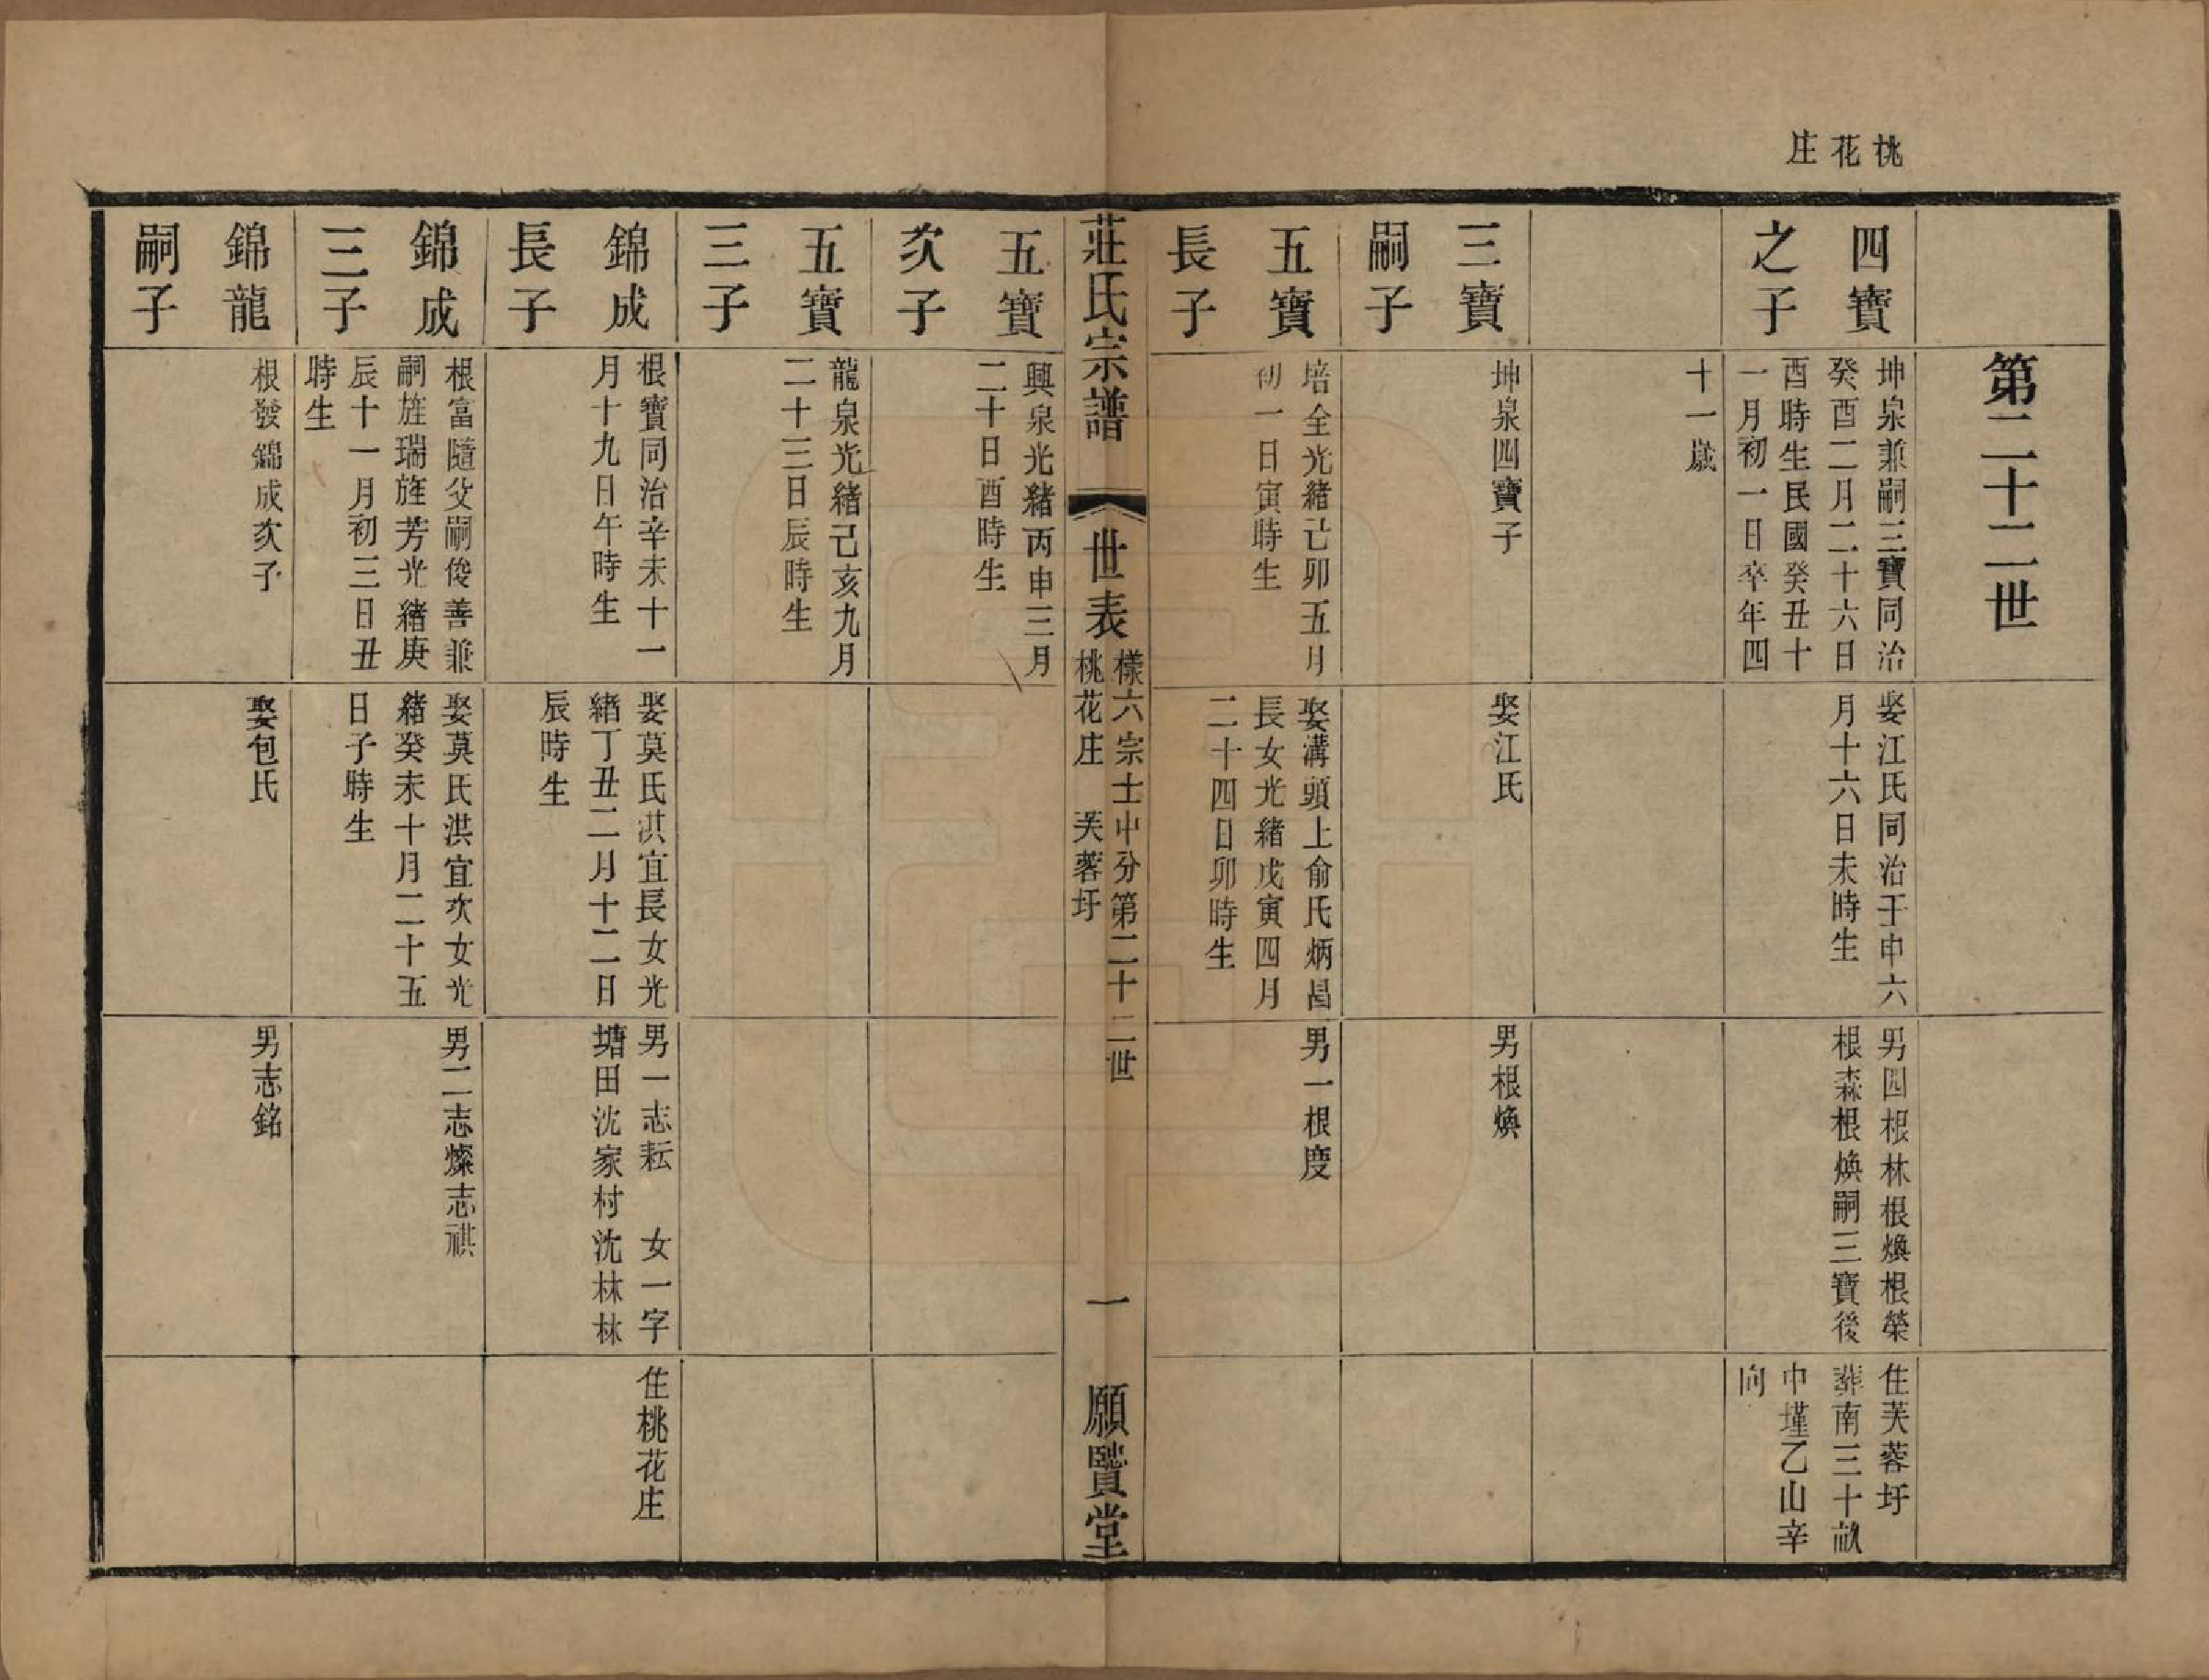 桃花庄
第二十二世
四寶
之子
坤泉兼嗣三寶同治
癸酉二月二十六日
酉時生民國癸丑十
一月初一日卒年四
十一歲
娶江氏同治壬申六
月十六日未時生
男四根林根煥根榮
根森根煥嗣三寶後
住芙蓉圩
葬南三十畝
中墐乙山辛
向
三寶
嗣子
坤泉四寶子
娶江氏
男根煥
五寶
長子
培全光緒己卯五月
初一日寅時生
娶溝頭上俞氏炳昌
長女光緒戊寅四月
二十四日卯時生
男一根度
莊氏宗譜
世表
樣六宗士中分第二十二世
桃花庄 芙蓉圩
一
願賢堂
五寶
次子
興泉光緒丙申三月
二十日酉時生
五寶
三子
龍泉光緒己亥九月
二十三日辰時生
錦成
長子
根寶同治辛未十一
月十九日午時生
娶莫氏洪宜長女光
緒丁丑二月十二日
辰時生
男一志耘 女一字
塘田沈家村沈林林
住桃花庄
錦成
三子
根富隨父嗣俊善兼
嗣旌瑞旌芳光緒庚
辰十一月初三日丑
時生
娶莫氏洪宜次女光
緒癸未十月二十五
日子時生
男二志燦志祺
錦龍
嗣子
根發錦成次子
娶包氏
男志銘